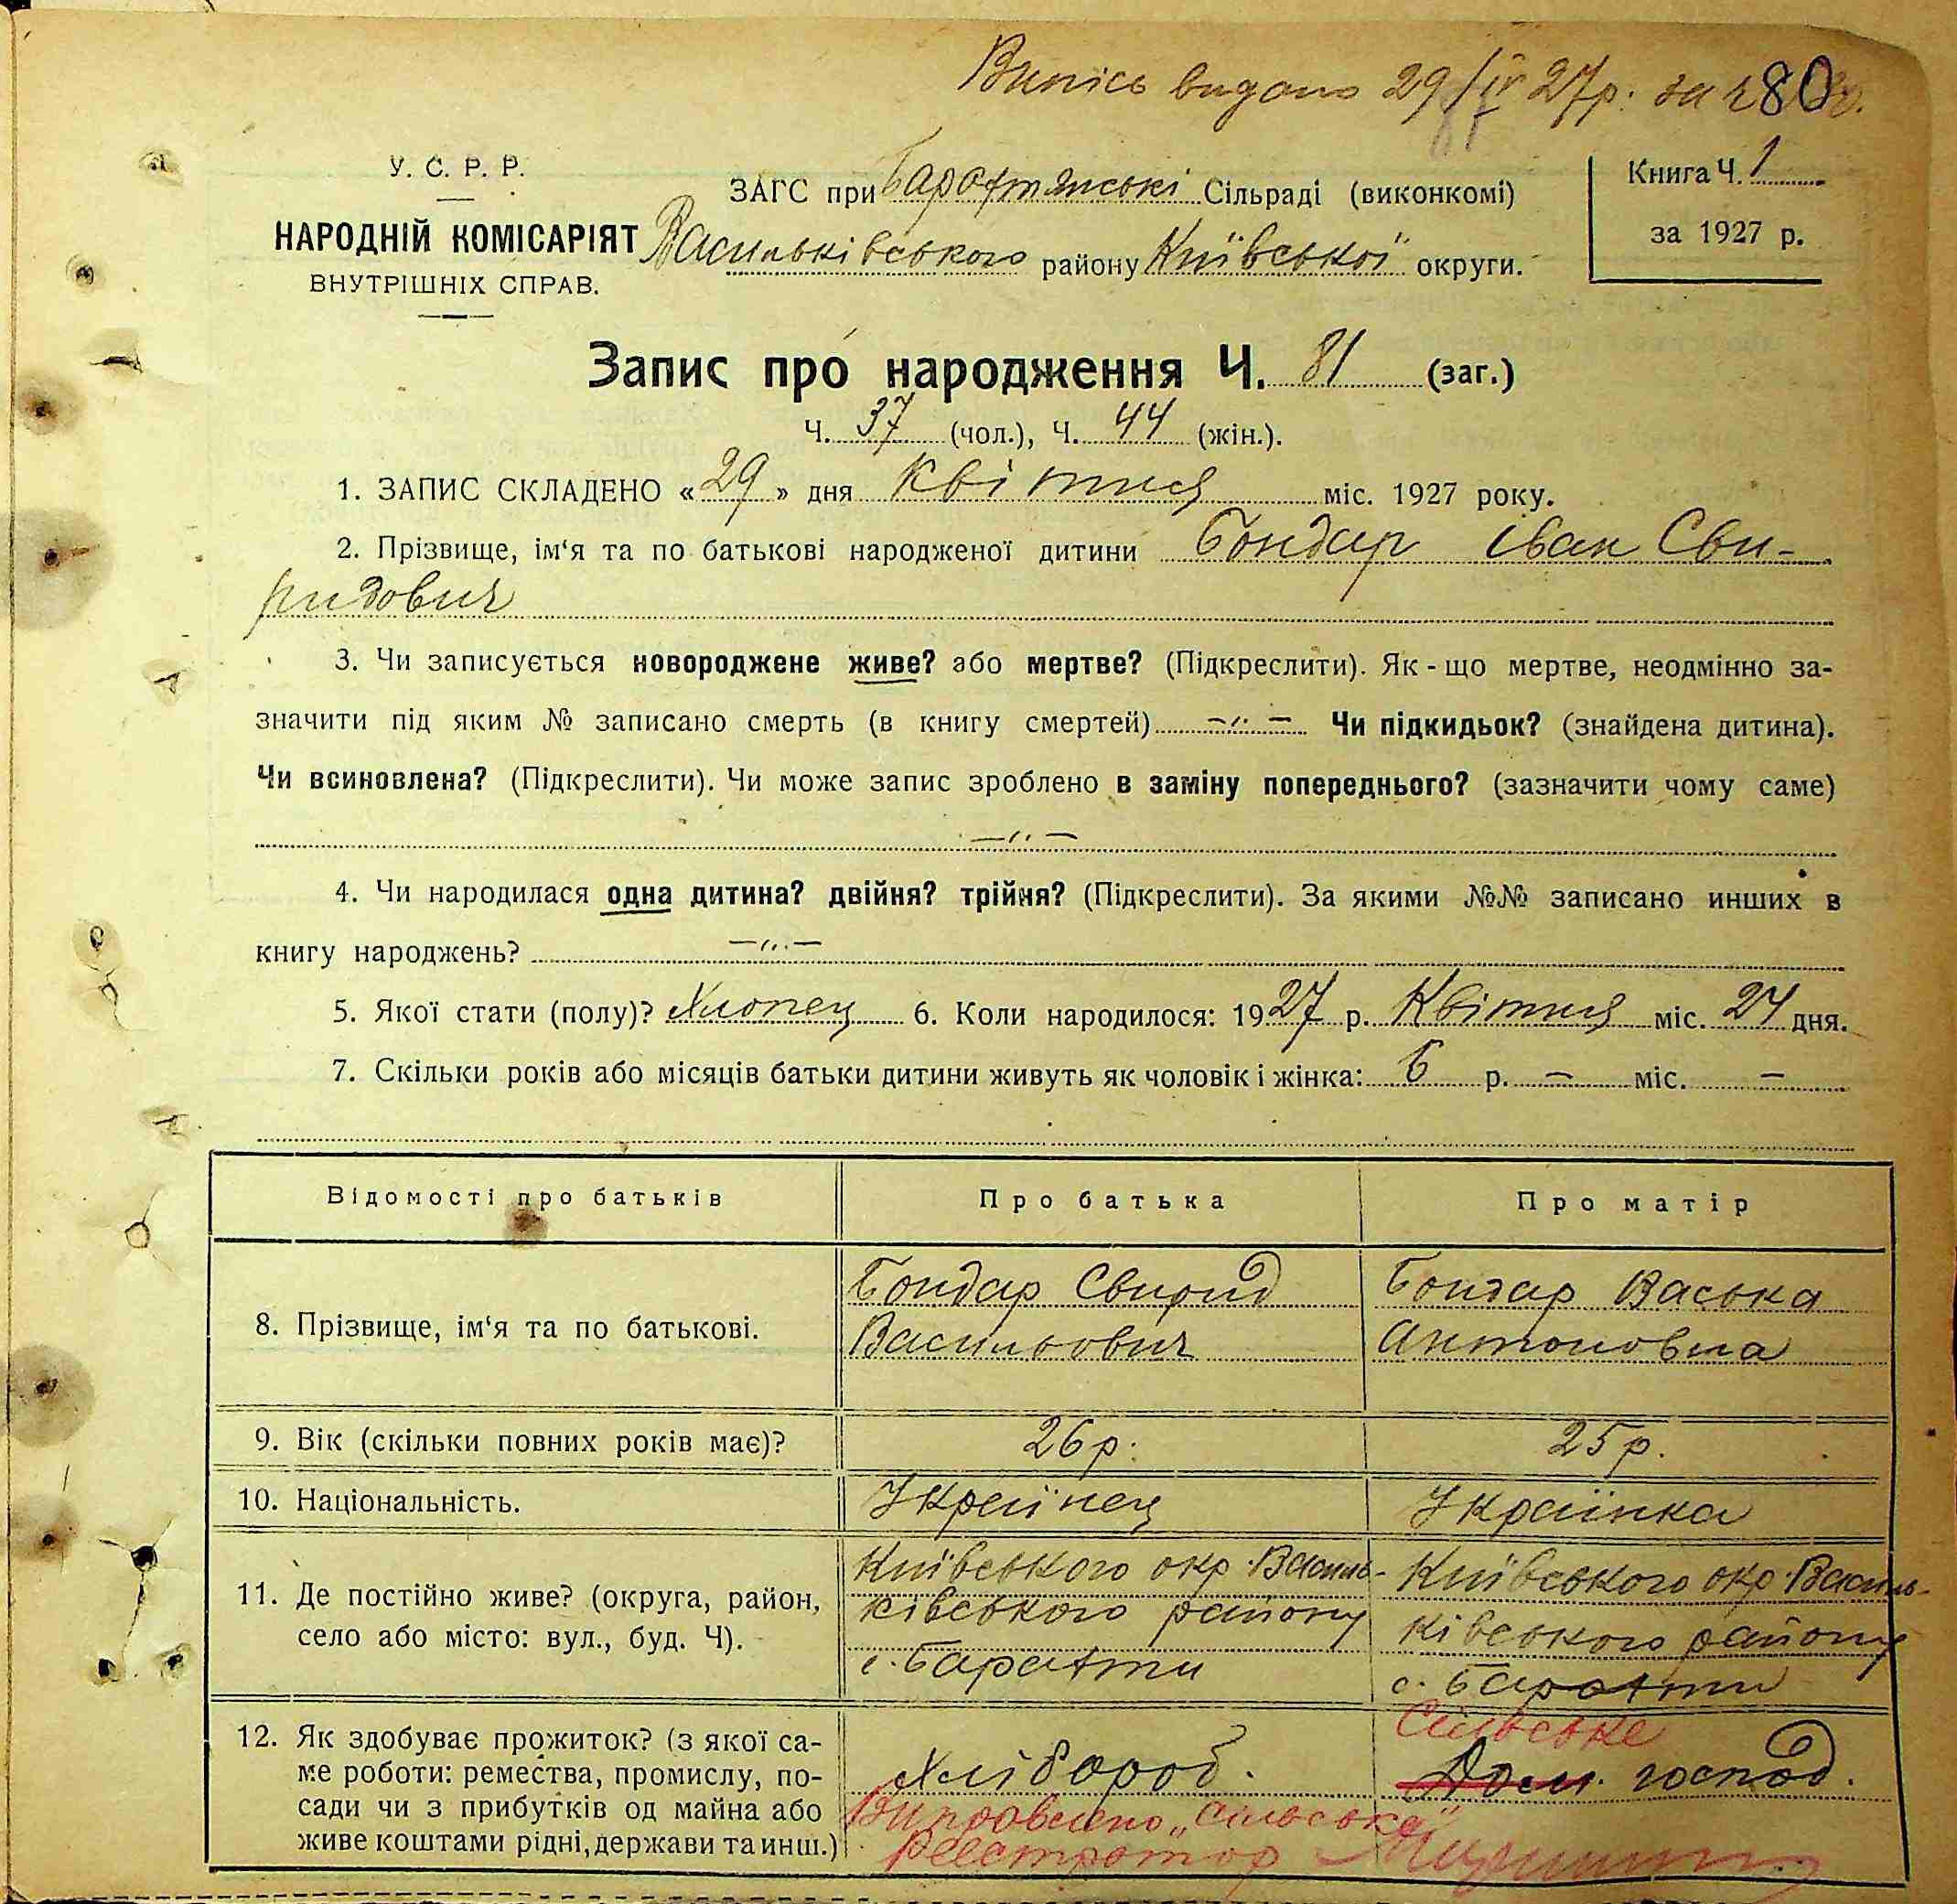 Випись видано 29/IV 27р. за ч 80
У. С. Р. Р.
НАРОДНІЙ КОМІСАРІЯТ
ВНУТРІШНІХ СПРАВ.
ЗАГС при Барахтянські Сільраді (виконкомі)
Васильківського району Київської округи.
Книга Ч. 1
за 1927 р.
Запис про народження Ч. 81 (заг.)
Ч. 37 (чол.), Ч. 44 (жін.).
1. ЗАПИС СКЛАДЕНО «29» дня Квітня міс. 1927 року.
2. Прізвище, ім‘я та по батькові народженої дитини Бондар Іван Сви-
ридович
3. Чи записується новороджене живе? або мертве? (Підкреслити). Як-що мертве, неодмінно за-
значити під яким № записано смерть (в книгу смертей) —〃— Чи підкидьок? (знайдена дитина).
Чи всиновлена? (Підкреслити). Чи може запис зроблено в заміну попереднього? (зазначити чому саме)
—〃—
4. Чи народилася одна дитина? двійня? трійня? (Підкреслити). За якими №№ записано инших в
книгу народжень? —〃—
5. Якої стати (полу)? Хлопец 6. Коли народилося: 1927 р. Квітня міс. 24 дня.
7. Скільки років або місяців батьки дитини живуть як чоловік і жінка: 6 р. — міс. —
Відомості про батьків
Про батька
Про матір
8. Прізвище, ім‘я та по батькові.
Бондар Свирид
Васильович
Бондар Васька
Антоновна
9. Вік (скільки повних років має)?
26р.
25р.
10. Національність.
Українец
Українка
11. Де постійно живе? (округа, район,
село або місто: вул., буд. Ч).
Київського окр. Василь-
ківського району
с. Барахти
Київського окр. Василь-
ківського району
с. Барахти
12. Як здобуває прожиток? (з якої са-
ме роботи: ремества, промислу, по-
сади чи з прибутків од майна або
живе коштами рідні, держави та инш.)
Хлібороб.
Сільське
Дом. господ.
Виправлено „Сільське"
Реєстратор